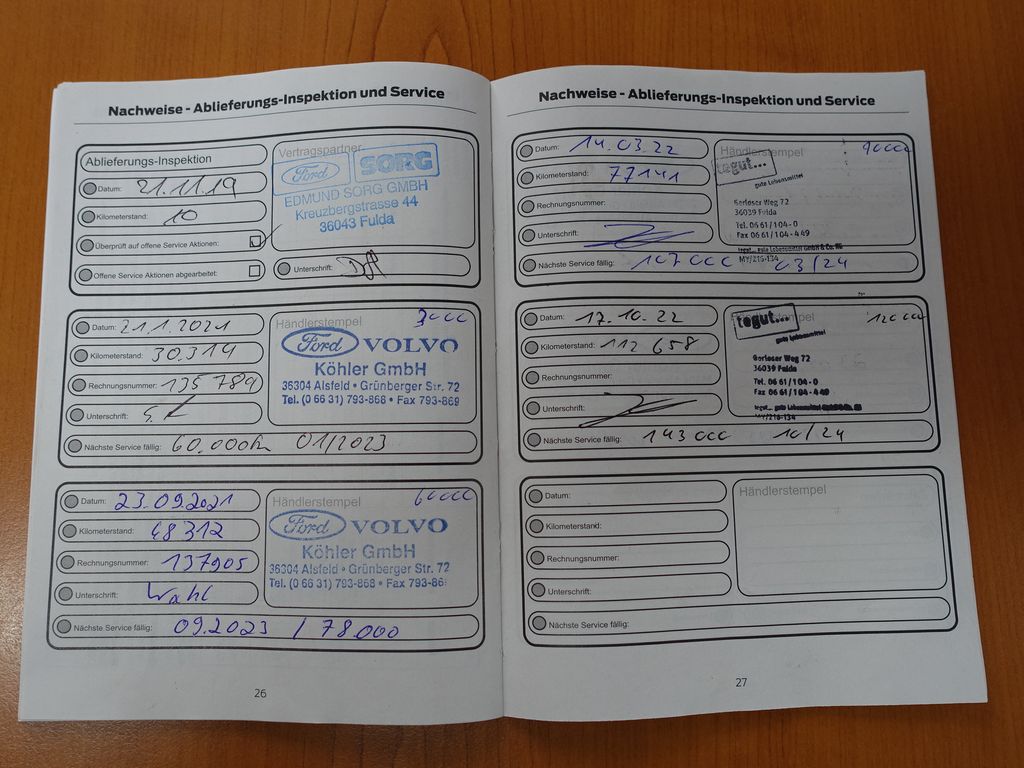 Nachweise - Ablieferungs-Inspektion und Service
Ablieferungs-Inspektion
Datum: 21.11.19
Kilometerstand: 10
Überprüft auf offene Service Aktionen:
Offene Service Aktionen abgearbeitet:
Vertragspartner
Ford SORG
EDMUND SORG GMBH
Kreuzbergstrasse 44
36043 Fulda
Unterschrift:
Datum: 21.1.2021
Kilometerstand: 30.314
Rechnungsnummer: 135789
Unterschrift:
Händlerstempel
Ford VOLVO
Köhler GmbH
36304 Alsfeld • Grünberger Str. 72
Tel. (0 66 31) 793-868 • Fax 793-869
Nächste Service fällig: 60.000km 01/2023
Datum: 23.09.2021
Kilometerstand: 48312
Rechnungsnummer: 137905
Unterschrift: Wahl
Händlerstempel 60000
Ford VOLVO
Köhler GmbH
36304 Alsfeld • Grünberger Str. 72
Tel. (0 66 31) 793-868 • Fax 793-86
Nächste Service fällig: 09.2023 / 78.000
26
Nachweise - Ablieferungs-Inspektion und Service
Datum: 14.03.22
Kilometerstand: 77141
Rechnungsnummer:
Unterschrift:
Händlerstempel 90000
tegut...
gute Lebensmittel
Gerloser Weg 72
36039 Fulda
Tel. 06 61/104-0
Fax 06 61/104-449
tegut... gute Lebensmittel GmbH & Co. KG
MY/216-134
Nächste Service fällig: 107000 03/24
Datum: 17.10.22
Kilometerstand: 112 658
Rechnungsnummer:
Unterschrift:
120000
tegut...
gute Lebensmittel
Gerloser Weg 72
36039 Fulda
Tel. 06 61/104-0
Fax 06 61/104-449
tegut... gute Lebensmittel
MY/216-134
Nächste Service fällig: 143000 10/24
Datum:
Kilometerstand:
Rechnungsnummer:
Unterschrift:
Händlerstempel
Nächste Service fällig:
27